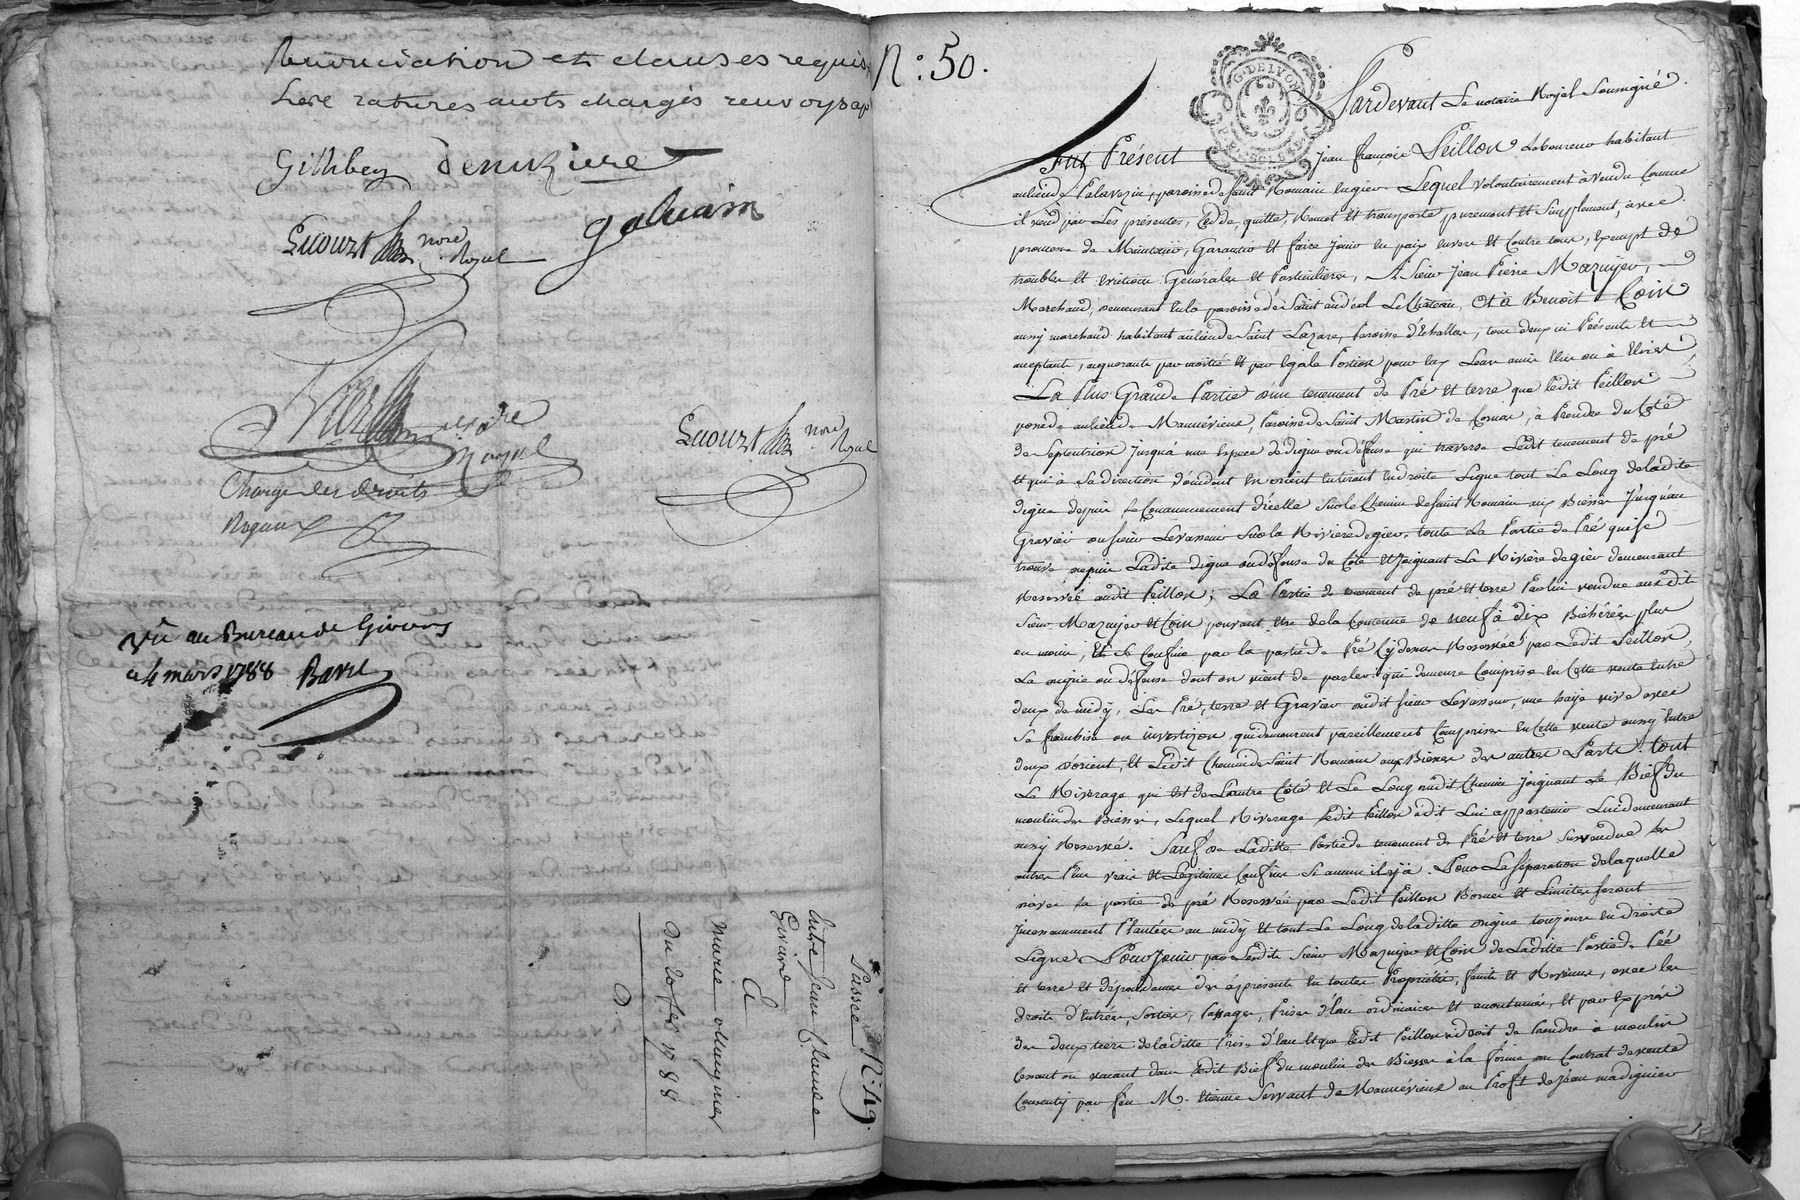 Renonciation et clauses requises
Livre ratures mots chargés renvoys ap
Gillibey Denuziere
galuain
Notre
Royal
Notre
Royal
Notre
Royal
Chargé des droits
Royaux
Vû au Bureau de Givors
a 4 mars 1788
entre Jean Claude
Givors
&
Marie
Du 20 fev. 1788
N.° 49.
N.° 50.
G. DE LYON
Pardevant Le notaire Royal Soussigné
Fut Présent Jean françois Peillon Laboureur habitant
au lieu de paroisse de Saint Romain en gier Lequel volontairement à vendu Comme
il vend par Les présentes, Cedde, quitte, Remet et transporte purement et Simplement, avec
promesse de Maintenir, Garantir et faire Jouir en paix envers et Contre tous, Exempt de
troubles et évictions Générales et Particulieres, A Sieur Jean Pierre Mazuyer,
Marchand, demeurant en la paroisse de Saint andéol Le Château, et à Benoît Coin
aussy marchand habitant au lieu de Saint Lazare, Paroisse d'Echallas, tous deux ici Présents et
acceptants, acquerants par moitié et par égale Portion pour eux Leurs amis élus ou à Elire
La Plus Grande Partie d'un tenement de Pré et terre que ledit Peillon
possède au lieu de Manevieux, Paroisse de Saint Martin de Cornas, à Prendre du Coté
de Septentrion Jusqu'à une Espece de digue ou défense qui traverse Ledit tenement de pré
et qui à Sa direction d'occident en orient en tirant en droite Ligne tout Le Long de ladite
digue depuis Le Commencement d'icelle Sur le Chemin de Saint Romain aux Biesses Jusqu'au
Gravier du sieur Levasseur Sur la Riviere de gier, toute La Partie de Pré qui se
trouve depuis Ladite digue ou défense du Coté et Joignant La Rivière de gier demeurant
Reservée audit Peillon; La Partie de tenement de pré et terre Par lui vendue auxdits
Sieur Mazuyer et Coin pouvant être de la Contenue de neuf à dix Bicherées plus
ou moins, et Se Confine par la partie de Pré Cy dessus Reservée par Ledit Peillon,
La digue ou défense dont on vient de parler qui demeure Comprise en Cette vente entre
deux de midy, Les Pré, terre et Gravier dudit sieur Levasseur, une haye vive avec
Sa franchise ou investizon, qui demeurent pareillement Comprises en Cette vente aussy entre
deux d'orient, et Ledit Chemin de Saint Romain aux Biesses des autres Parts. tout
Le Rivérage qui est de L'autre Côté et Le Long dudit Chemin Joignant Le Bief du
moulin des Biesses, Lequel Rivérage Ledit Peillon à dit Lui appartenir Lui demeurant
aussy Reservé. Sauf de Laditte Partie de tenement de Pré et terre Survendue Les
autres Plus vrais et Légitimes Confins Si aucuns il y à. Pour La Séparation de laquelle
d'avec la partie de pré Reservée par Ledit Peillon Bornes et Limites seront
Incessamment Plantées au midy et tout Le Long de laditte digue toujours en droite
Ligne. Pour Jouir par Lesdits Sieur Mazuyer et Coin de Laditte Partie de Pré
et terre et dépendances dès àprésent en toutes Propriétés, fruits et Revenus, avec les
droits d'Entrées, Sorties, Passages, Prises d'Eau ordinaires et accoutumés, et par exprès
des deux tiers de laditte Prise d'Eau que Ledit Peillon a droit de Prendre à moulin
cessant ou vacant dans Ledit Bief du moulin des Biesses à la forme du Contrat de vente
Consenty par feu M. Etienne Servant de Manevieux au Profit de Jean madignier